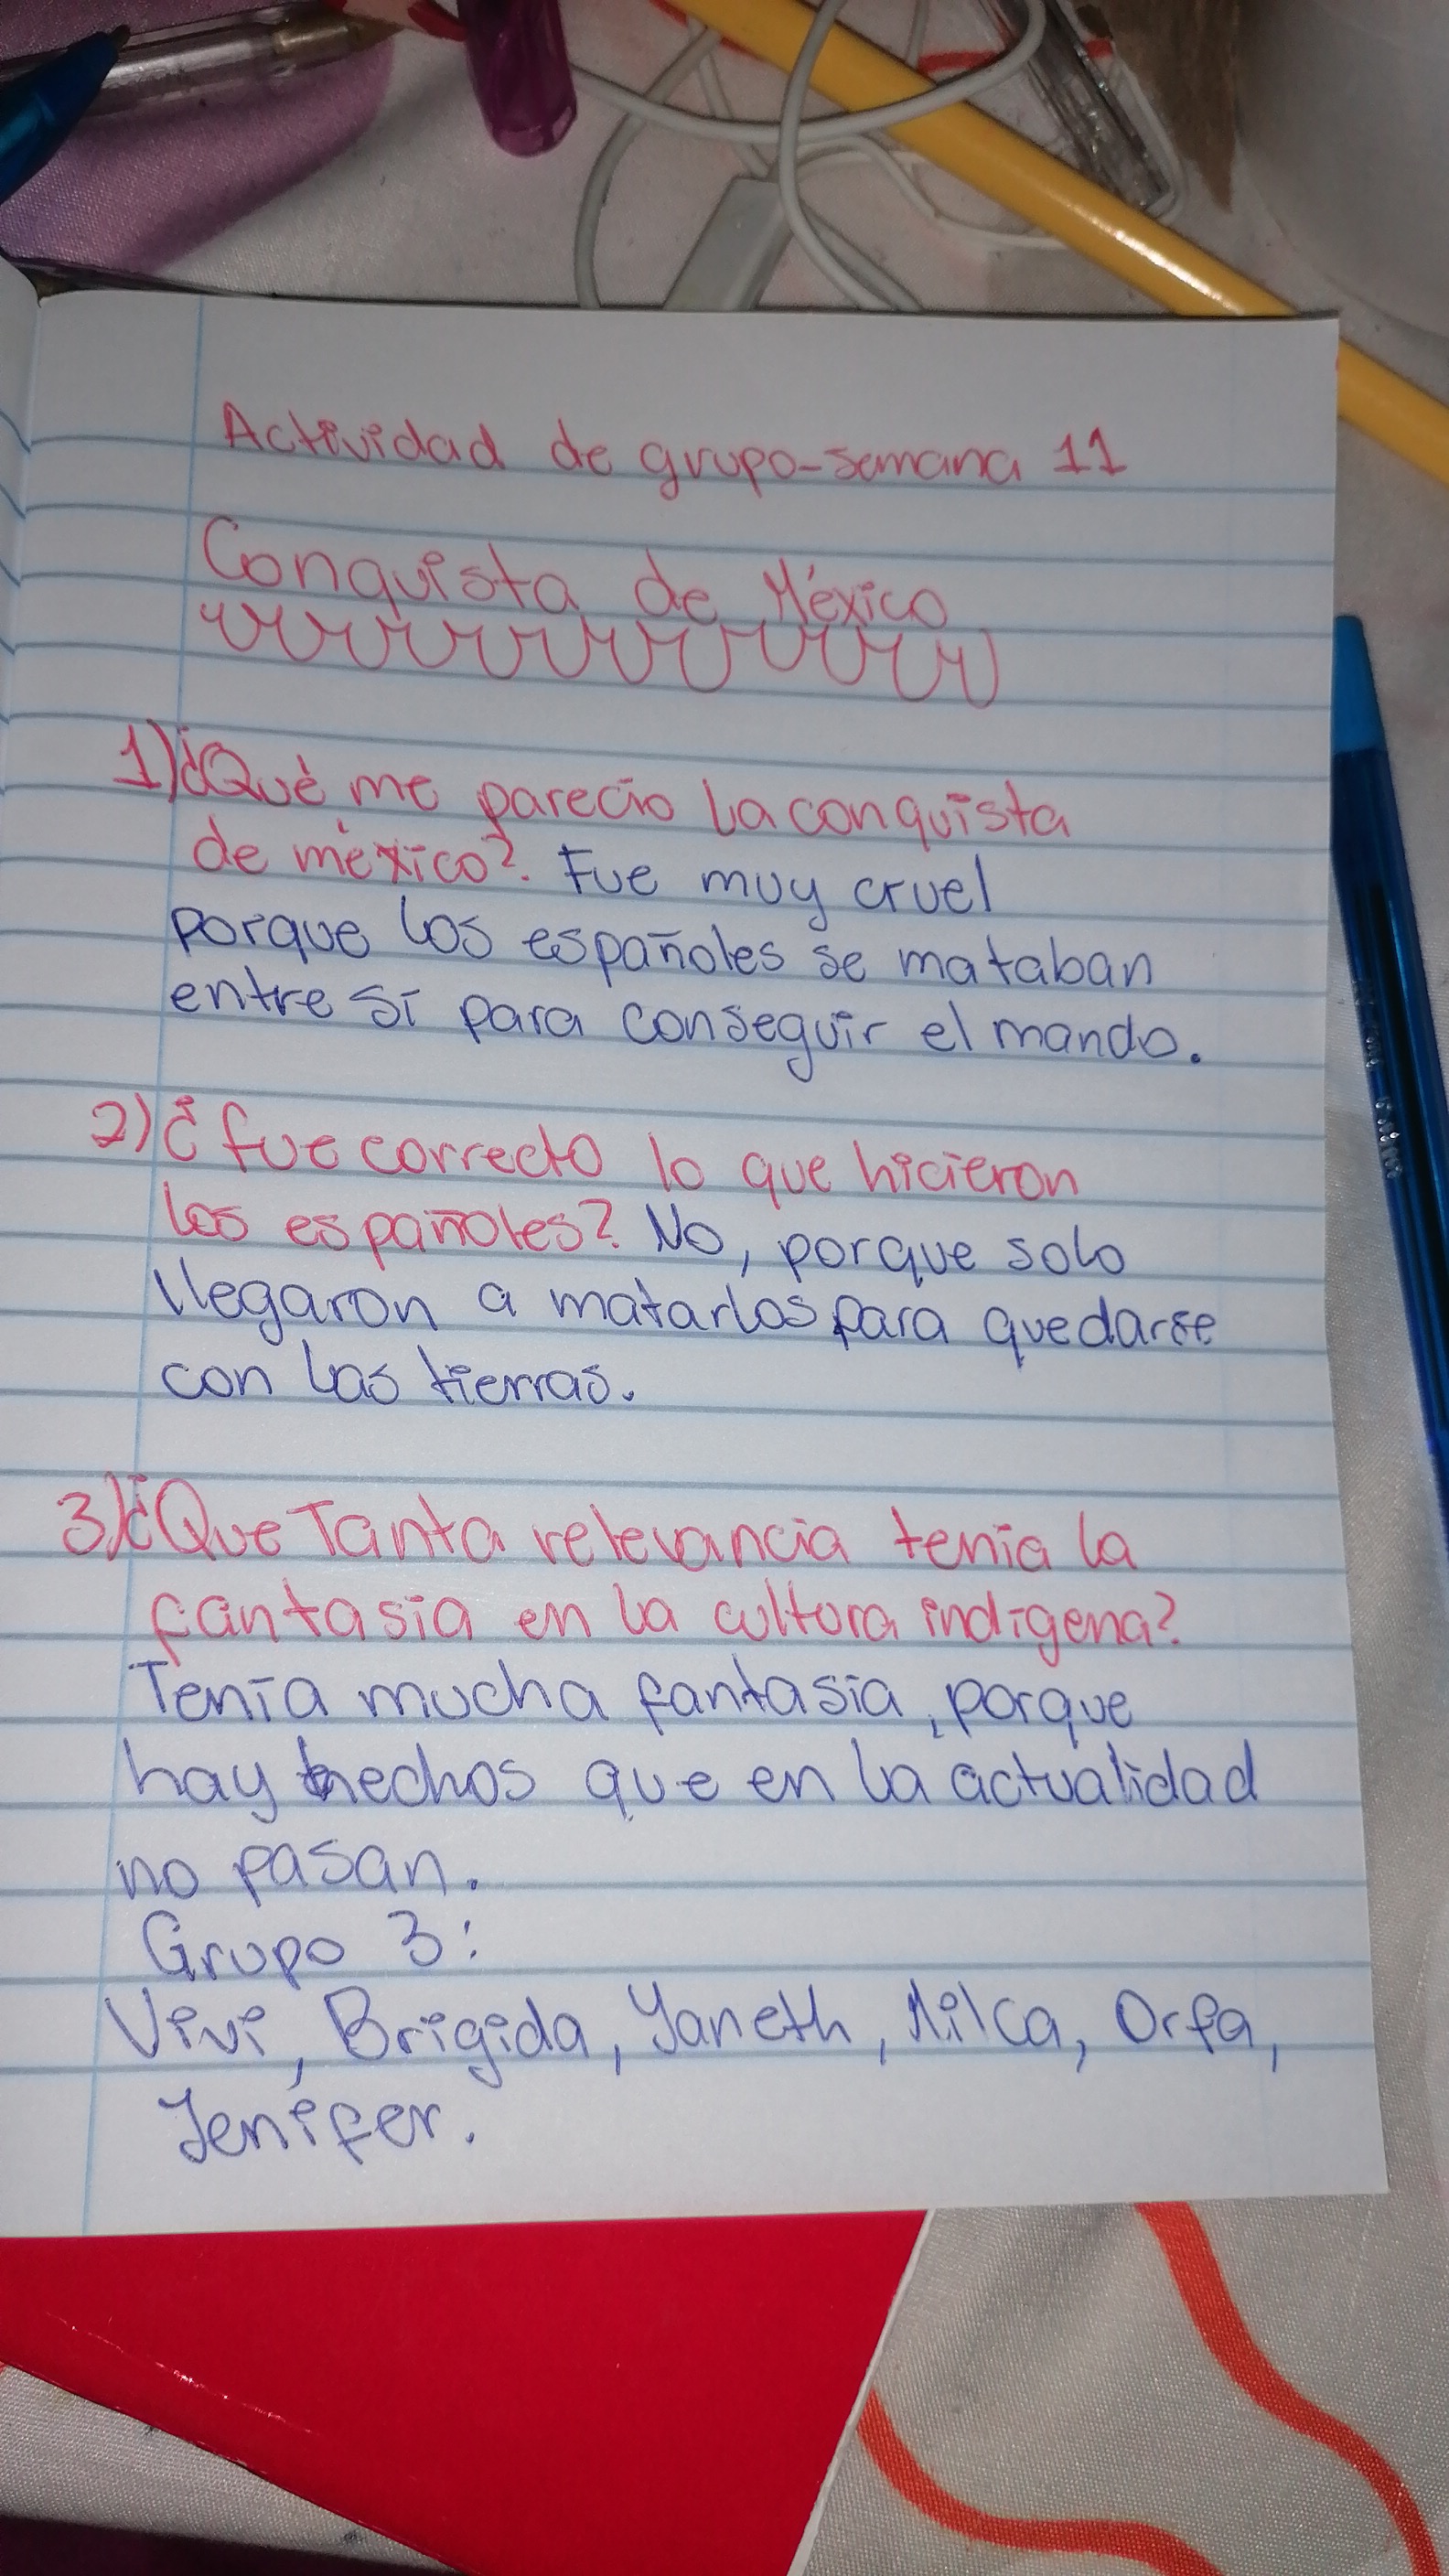 Actividad de grupo-semana 11
Conquista de México
1) ¿Qué me parecio la conquista
de méxico?. Fue muy cruel
porque los españoles se mataban
entre sí para conseguir el mando.
2) ¿fue correcto lo que hicieron
los españoles? No, porque solo
llegaron a matarlos para quedarse
con las tierras.
3) ¿Que Tanta relevancia tenia la
fantasia en la cultura indigena?
Tenía mucha fantasía, porque
hay hechos que en la actualidad
no pasan.
Grupo 3:
Vivi, Brigida, Yaneth, Milca, Orfa,
Jenifer.